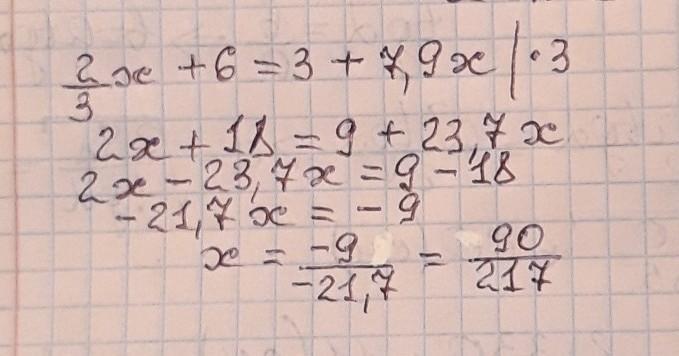 2/3 x + 6 = 3 + 7,9x | · 3
2x + 18 = 9 + 23,7x
2x - 23,7x = 9 - 18
-21,7x = -9
x = -9/-21,7 = 90/217